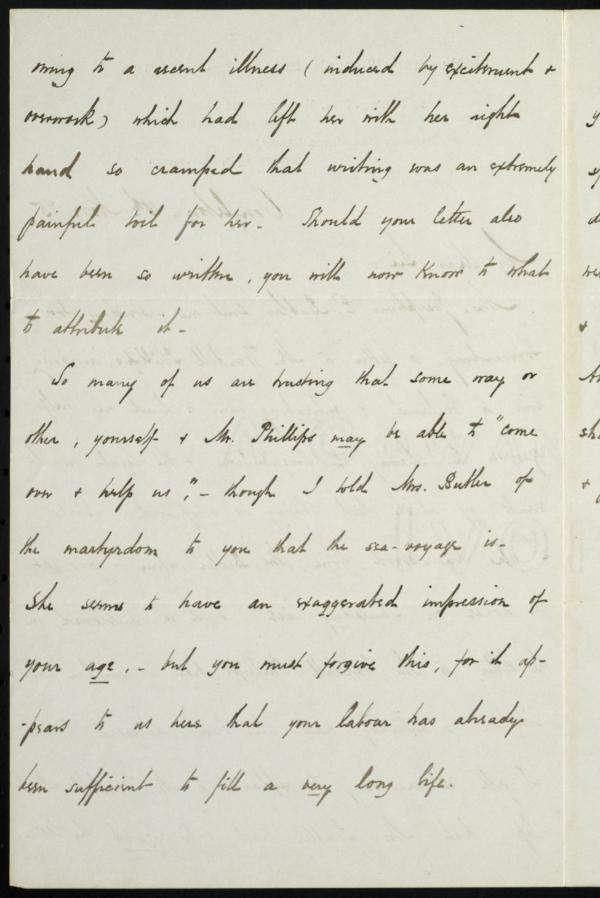 owing to a recent illness (induced by excitement &
overwork) which had left her with her right
hand so cramped that writing was an extremely
painful toil for her - Should your letter also
have been so written, you will now know to what
to attribute it -
So many of us are trusting that some way or
other, yourself & Mr. Phillips may be able to "come
over & help us," - though I told Mrs. Butler of
the martyrdom to you that the sea-voyage is -
She seems to have an exaggerated impression of
your age, - but you must forgive this, for it ap-
-pears to us here that your labour has already
been sufficient to fill a very long life.